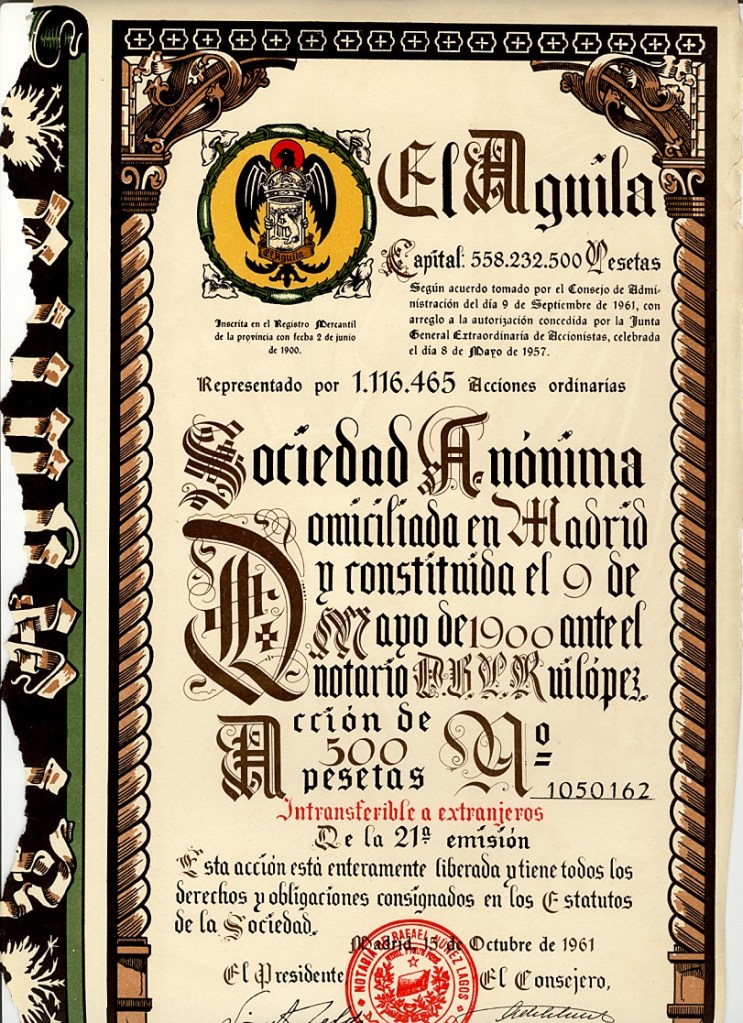 El Aguila
Capital: 558.232.500 Pesetas
Según acuerdo tomado por el Consejo de Admi-
nistración del día 9 de Septiembre de 1961, con
arreglo a la autorización concedida por la Junta
General Extraordinaria de Accionistas, celebrada
el día 8 de Mayo de 1957.
El Aguila
Inscrita en el Registro Mercantil
de la provincia con fecha 2 de junio
de 1900.
Representado por 1.116.465 Acciones ordinarias
Sociedad Anónima
Domiciliada en Madrid
y constituida el 9 de
Mayo de 1900 ante el
notario D.B.L.Ruilópez.
Acción de
500
pesetas
Nº
1050162
Intransferible a extranjeros
De la 21ª emisión
Esta acción está enteramente liberada y tiene todos los
derechos y obligaciones consignados en los Estatutos
de la Sociedad.
Madrid, 15 de Octubre de 1961
El Presidente
El Consejero,
NOTARIA RAFAEL NUÑEZ LAGOS